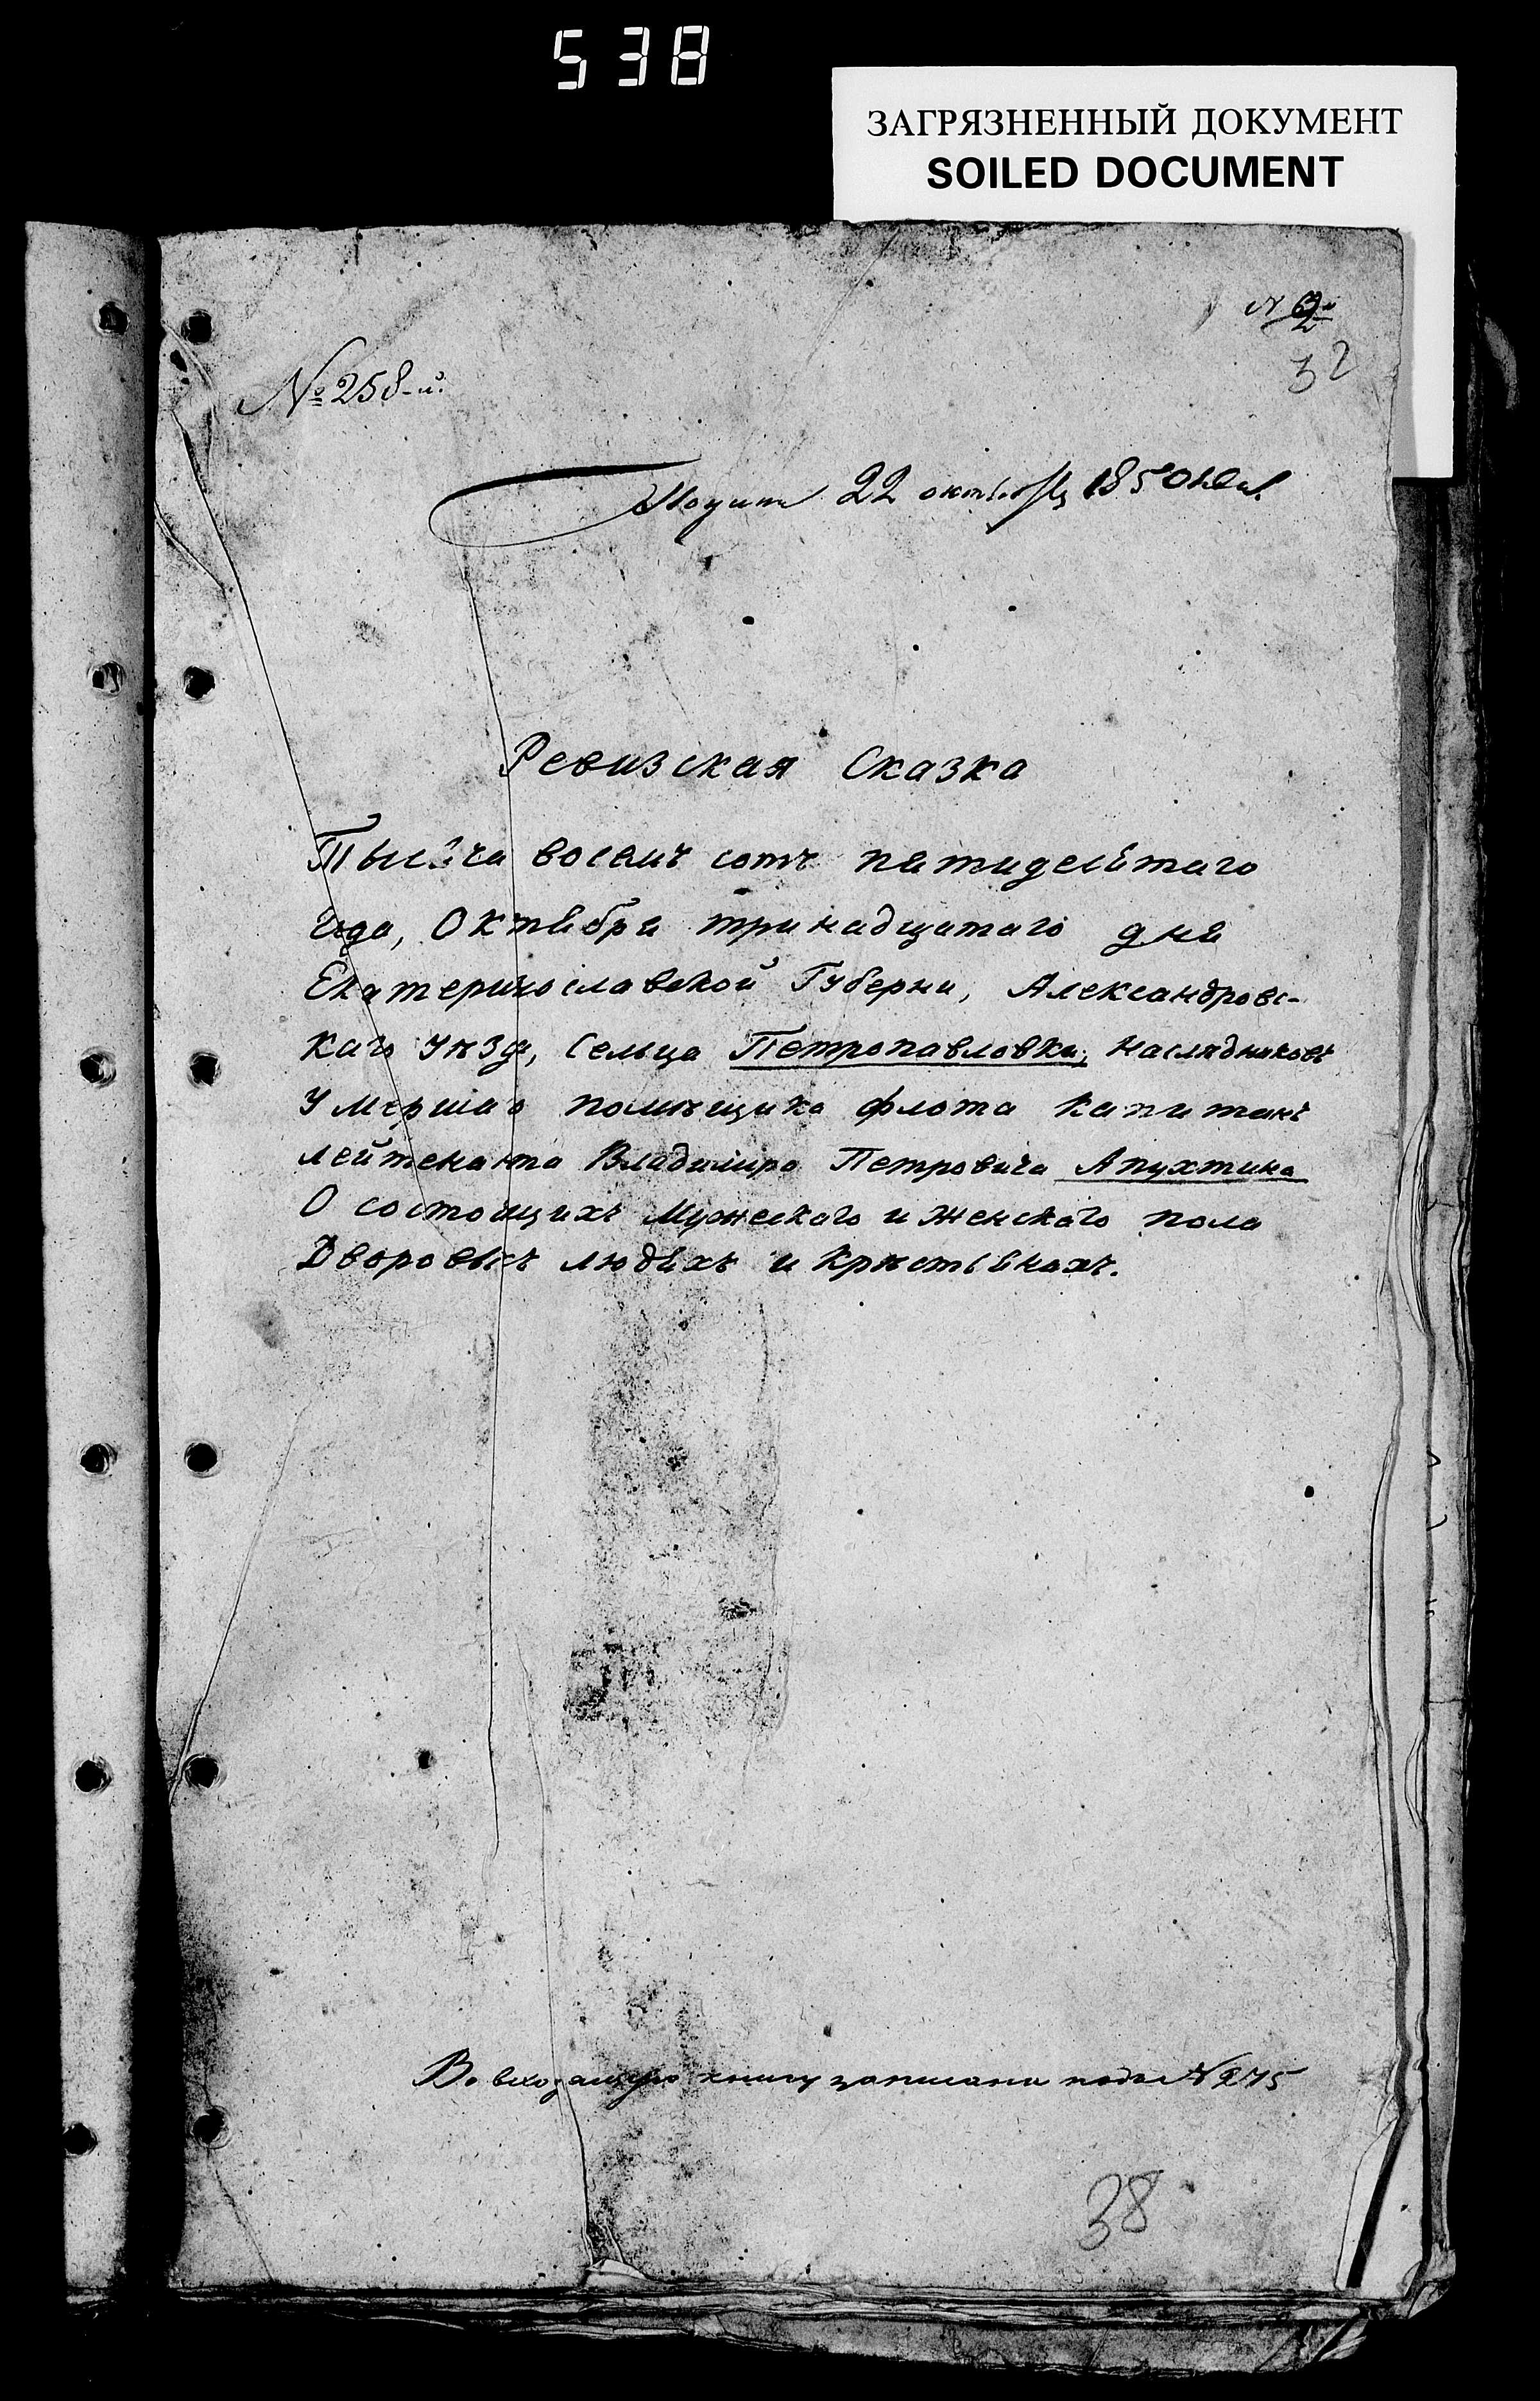 538
ЗАГРЯЗНЕННЫЙ ДОКУМЕНТ
SOILED DOCUMENT
32
№ 258-й.
22 октября 1850
Ревизская Сказка
Тысяча восемъ сотъ пятидесятаго
года, Октября тринадцатаго дня
Екатеринославской Губерни, Александровс-
каго уѣзда, Сельца Петропавловки, наслѣдниковъ
умершаго помѣщика флота капитанъ
лейтенанта Владимира Петровича Апухтина
О состоящихъ мужескаго и женскаго пола
Дворовыхъ людяхъ и крѣстьянахъ.
Во входящую книгу записана подъ № 275
38